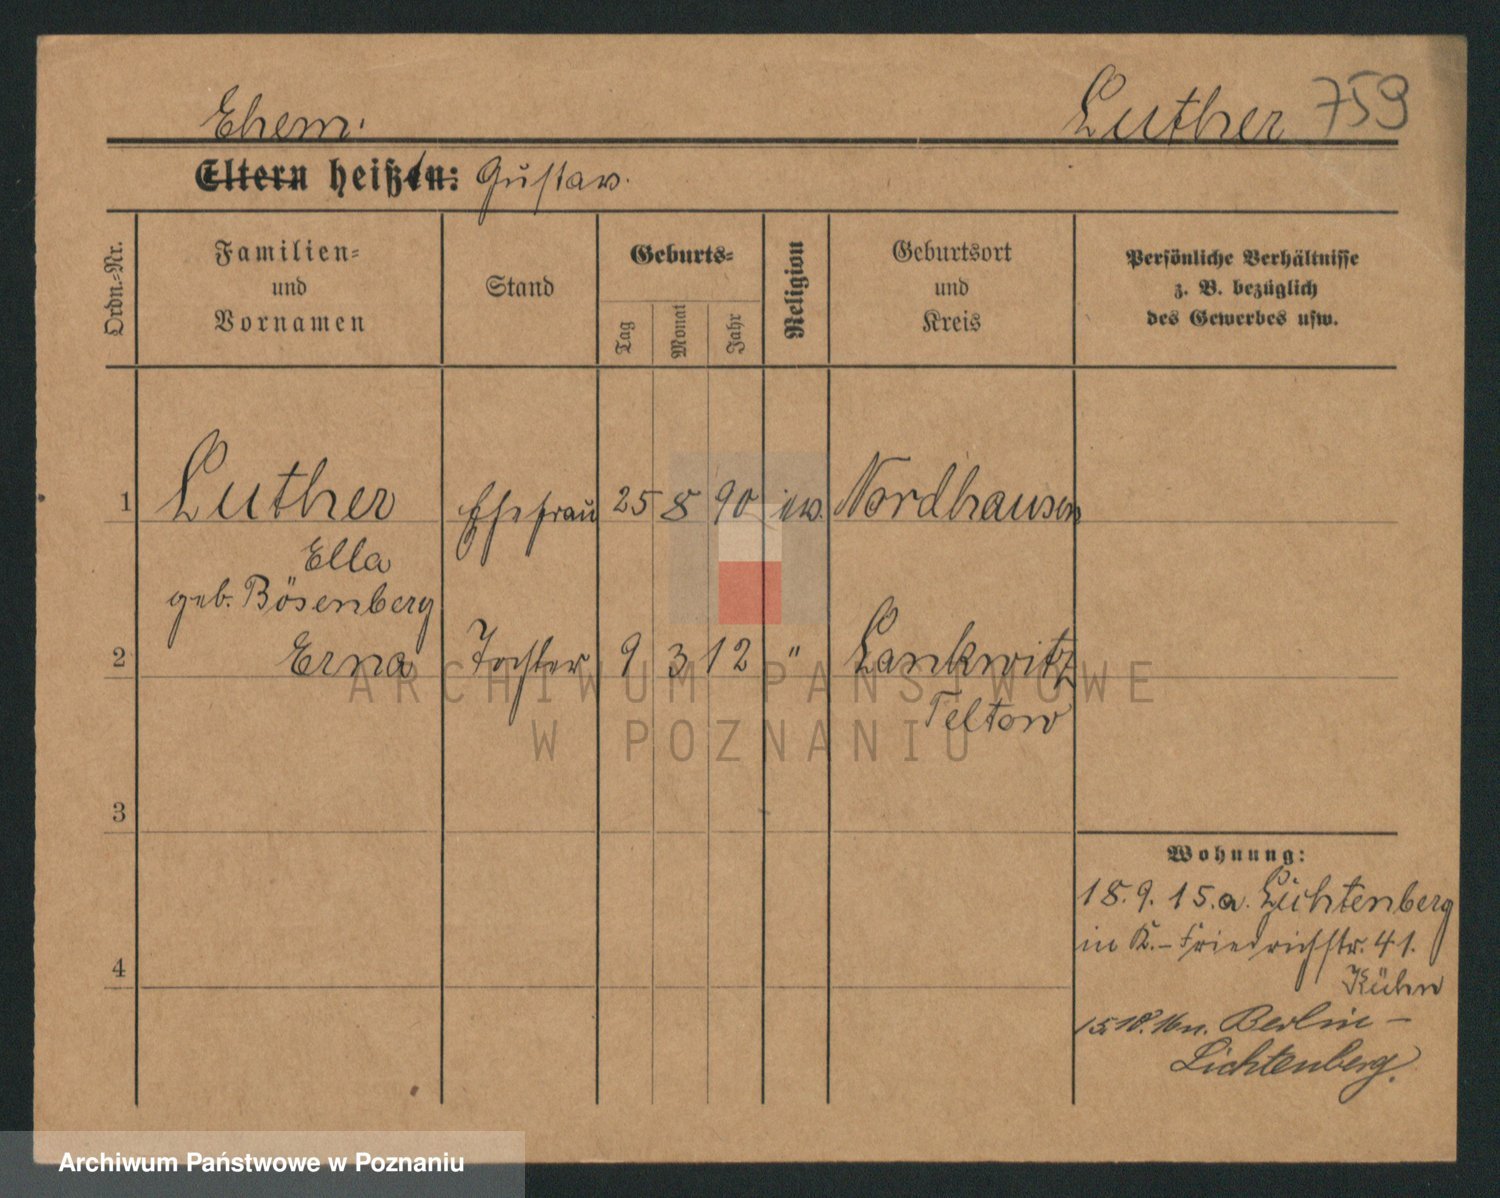 Ehem. Luther 759
Eltern heißt: Gustav.
Ordn.-Nr.
Familien-
und
Vornamen
Stand
Geburts-
Tag
Monat
Jahr
Religion
Geburtsort
und
Kreis
Persönliche Verhältnisse
z. B. bezüglich
des Gewerbes usw.
1 Luther Ehefrau 25 8 90 ev. Nordhausen
Ella
geb. Bösenberg
2 Erna Tochter 9 3 12 " Lankwitz
Teltow
3
4
Wohnung:
18.9.15.a. Lichtenberg
in K.-Friedrichstr. 41.
Kühn
15.10.16 n. Berlin-
Lichtenberg.
ARCHIWUM PAŃSTWOWE
W POZNANIU
Archiwum Państwowe w Poznaniu